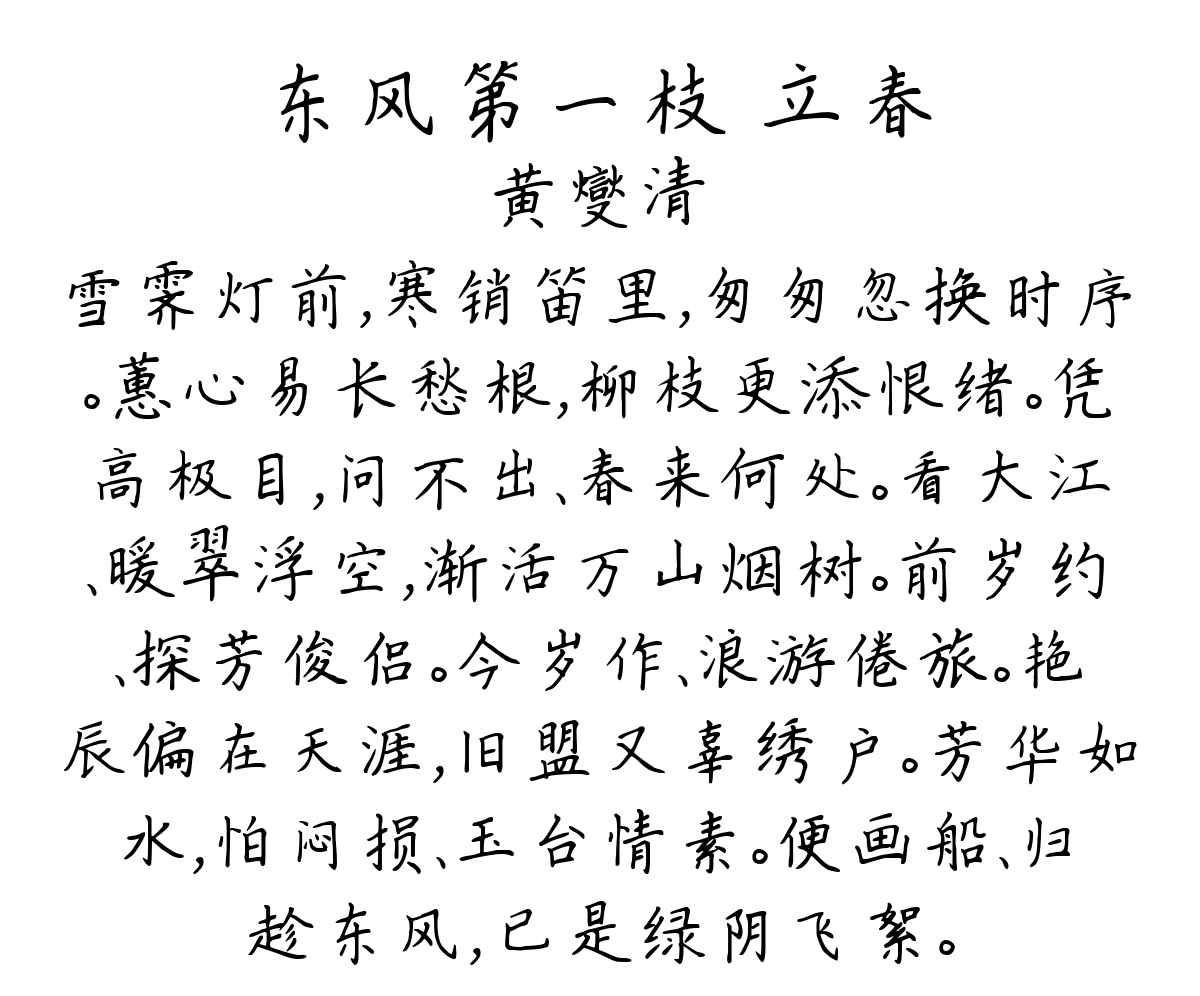 东风第一枝 立春
黄燮清
雪霁灯前,寒销笛里,匆匆忽换时序
。蕙心易长愁根,柳枝更添恨绪。凭
高极目,问不出、春来何处。看大江
、暖翠浮空,渐活万山烟树。前岁约
、探芳俊侣。今岁作、浪游倦旅。艳
辰偏在天涯,旧盟又辜绣户。芳华如
水,怕闷损、玉台情素。便画船、归
趁东风,已是绿阴飞絮。